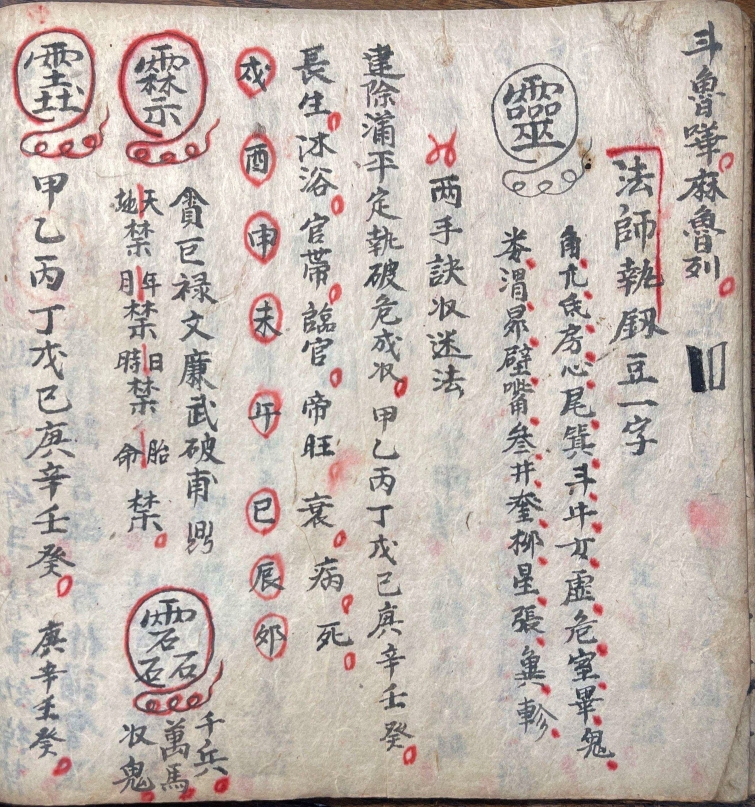 斗魯嘩麻魯列
法師執釼豆一字
靈
角亢氐房心尾箕斗牛女虛危室畢鬼
娄渭昴壁嘴參井奎柳星張翼軫
两手訣収迷法
建除滿平定執破危成収甲乙丙丁戊己庚辛壬癸
長生沐浴官帶臨官帝旺衰病死
戍酉申未午巳辰夘
貪巨禄文廉武破甫
天地禁年月禁日時禁胎命禁
千兵萬馬収鬼
甲乙丙丁戊己庚辛壬癸庚辛壬癸